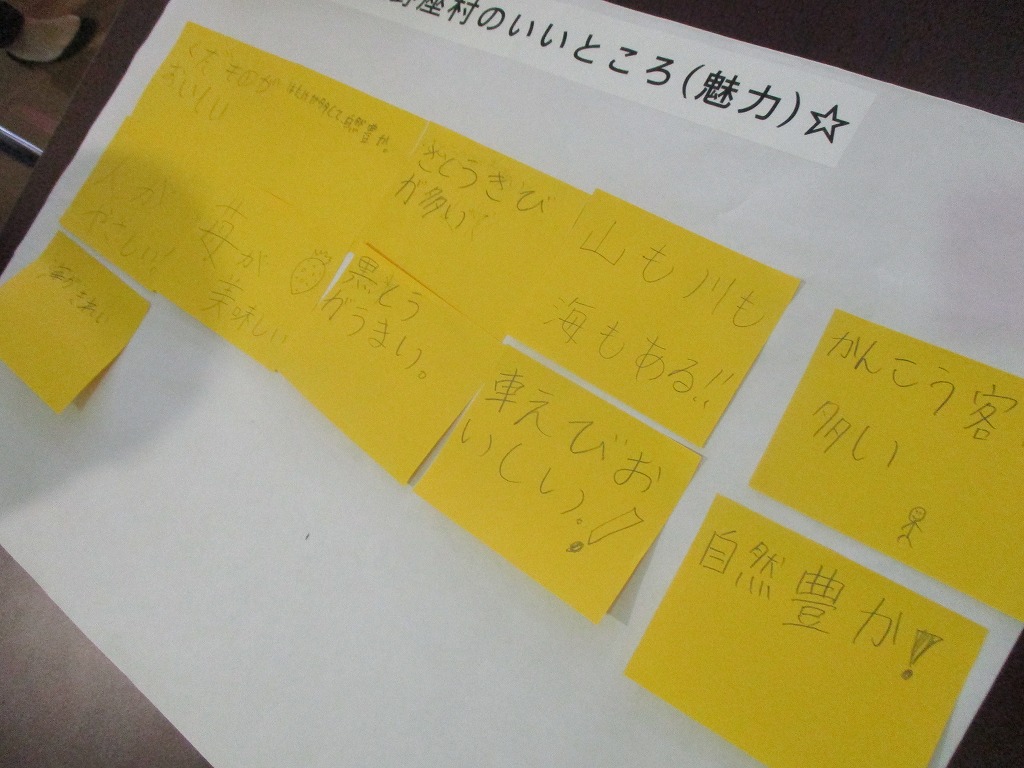 座村のいいところ(魅力)☆
くだものが
おいしい
自然豊か。
さとうきび
が多い!
山も川も
海もある!!
人が
やさしい!
苺が
美味しい
黒とう
がうまい。
車えびお
いしい。!
かんこう客
多い
自然豊か!